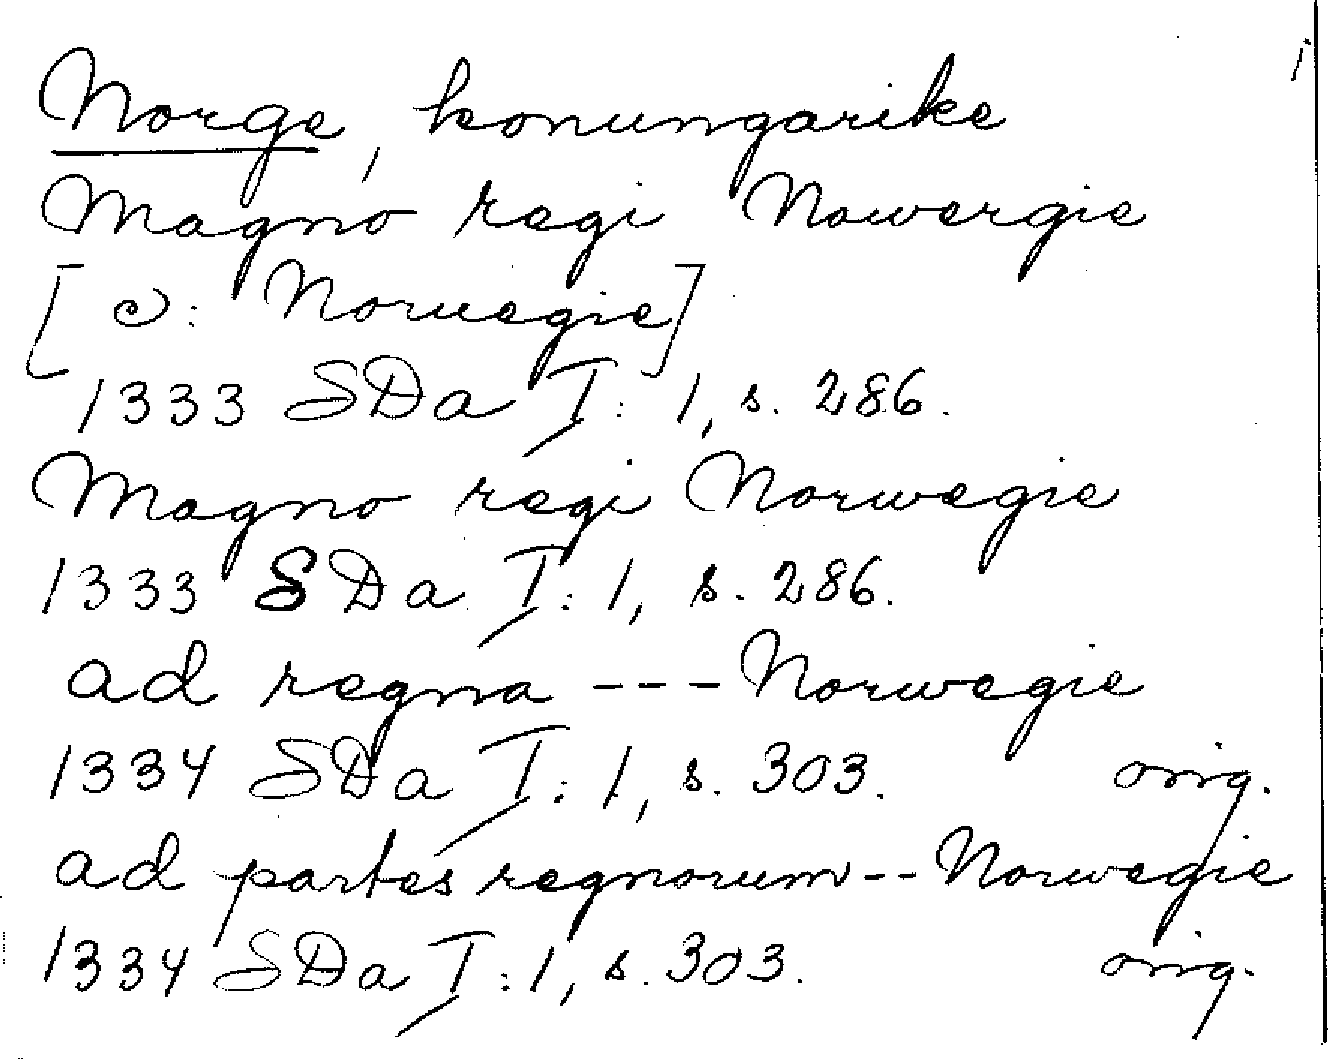 Norge, konungarike
Magno regi Nowergie
[ɔ: Norwegie]
1333 SDa I: 1, s. 286.
Magno regi Norwegie
1333 SDa I: 1, s. 286.
ad regna --- Norwegie
1334 SDa I: 1, s. 303. orig.
ad partes regnorum -- Norwegie
1334 SDa I: 1, s. 303. orig.